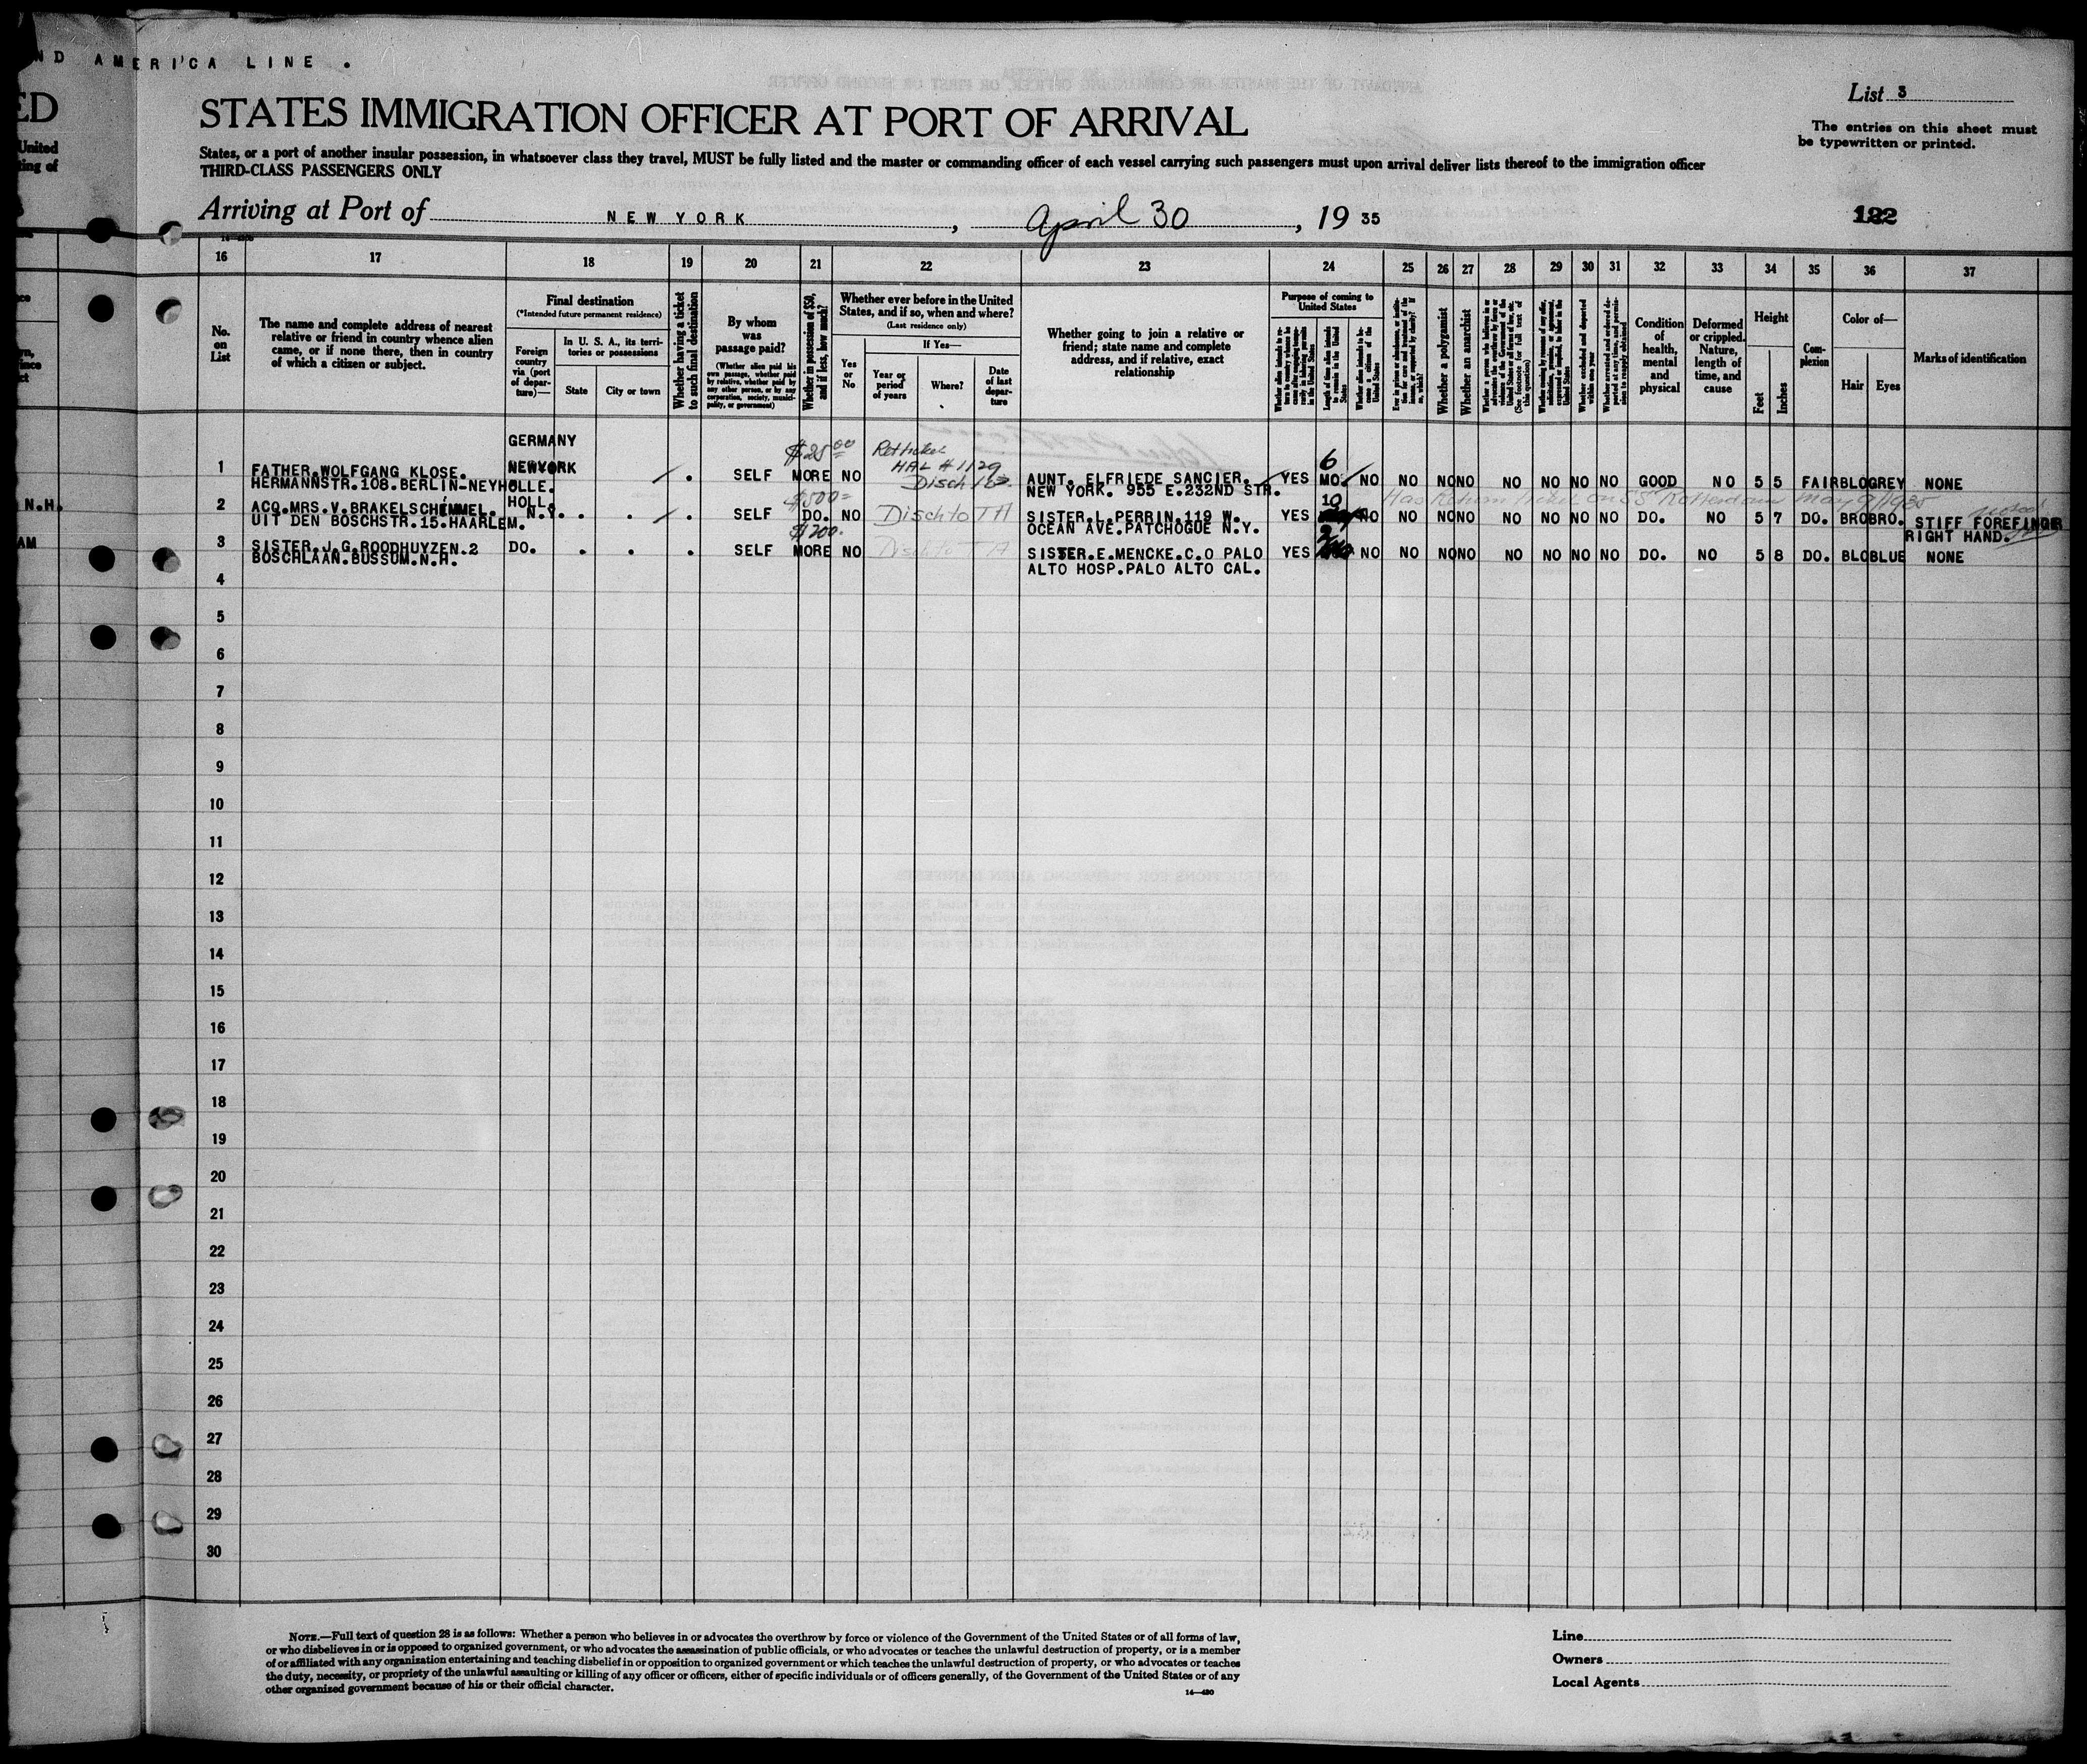 ND AMERICA LINE .
ED
United
ting of
STATES IMMIGRATION OFFICER AT PORT OF ARRIVAL
List 3
The entries on this sheet must
be typewritten or printed.
States, or a port of another insular possession, in whatsoever class they travel, MUST be fully listed and the master or commanding officer of each vessel carrying such passengers must upon arrival deliver lists thereof to the immigration officer
THIRD-CLASS PASSENGERS ONLY
Arriving at Port of NEW YORK , April 30 , 19 35
182
16 17 18 19 20 21 22 23 24 25 26 27 28 29 30 31 32 33 34 35 36 37
No. on List
The name and complete address of nearest relative or friend in country whence alien came, or if none there, then in country of which a citizen or subject.
Final destination
(*Intended future permanent residence)
Foreign country via (port of departure)—
In U. S. A., its territories or possessions
State
City or town
Whether having a ticket to such final destination
By whom was passage paid?
(Whether alien paid his own passage, whether paid by relative, whether paid by any other person, or by any corporation, society, municipality, or government)
Whether in possession of $50, and if less, how much?
Whether ever before in the United States, and if so, when and where?
(Last residence only)
Yes or No
If Yes—
Year or period of years
Where?
Date of last departure
Whether going to join a relative or friend; state name and complete address, and if relative, exact relationship
Purpose of coming to United States
Length of time alien intends to remain in the United States
Whether alien intends to become a citizen of the United States
Whether a polygamist
Whether an anarchist
(See footnote for full text of this question)
Condition of health, mental and physical
Deformed or crippled. Nature, length of time, and cause
Height
Feet
Inches
Complexion
Color of—
Hair
Eyes
Marks of identification
1 FATHER.WOLFGANG KLOSE.
HERMANNSTR.108.BERLIN-NEYHOLLE.
GERMANY
NEWYORK
. SELF $25 00 MORE NO
HAL # 1129
AUNT. ELFRIEDE SANCIER.
NEW YORK. 955 E.232ND STR.
YES 6 MO. NO NO NO NO NO NO NO NO GOOD NO 5 5 FAIR BLO GREY NONE
Has Return Ticket on SS Rotterdam May 9/1935
N.H.
2 ACQ.MRS.V.BRAKELSCHEMMEL.
UIT DEN BOSCHSTR.15.HAARLEM.
HOLL.
N.Y. . . . SELF $500= DO. NO Disch to TH
SISTER.L.PERRIN.119 W.
OCEAN AVE.PATCHOGUE N.Y.
YES 10 NO NO NO NO NO NO NO NO DO. NO 5 7 DO. BRO BRO. STIFF FOREFINGR
RIGHT HAND.
AM
3 SISTER.J.G.ROODHUYZEN.2
BOSCHLAAN.BUSSUM.N.H.
DO. . . . SELF $200. MORE NO
SISTER.E.MENCKE.C.O PALO
ALTO HOSP.PALO ALTO CAL.
YES 2 NO NO NO NO NO NO NO NO DO. NO 5 8 DO. BLO BLUE NONE
4
5
6
7
8
9
10
11
12
13
14
15
16
17
18
19
20
21
22
23
24
25
26
27
28
29
30
NOTE.—Full text of question 28 is as follows: Whether a person who believes in or advocates the overthrow by force or violence of the Government of the United States or of all forms of law,
or who disbelieves in or is opposed to organized government, or who advocates the assassination of public officials, or who advocates or teaches the unlawful destruction of property, or is a member
of or affiliated with any organization entertaining and teaching disbelief in or opposition to organized government or which teaches the unlawful destruction of property, or who advocates or teaches
the duty, necessity, or propriety of the unlawful assaulting or killing of any officer or officers, either of specific individuals or of officers generally, of the Government of the United States or of any
other organized government because of his or their official character.
14—430
Line
Owners
Local Agents